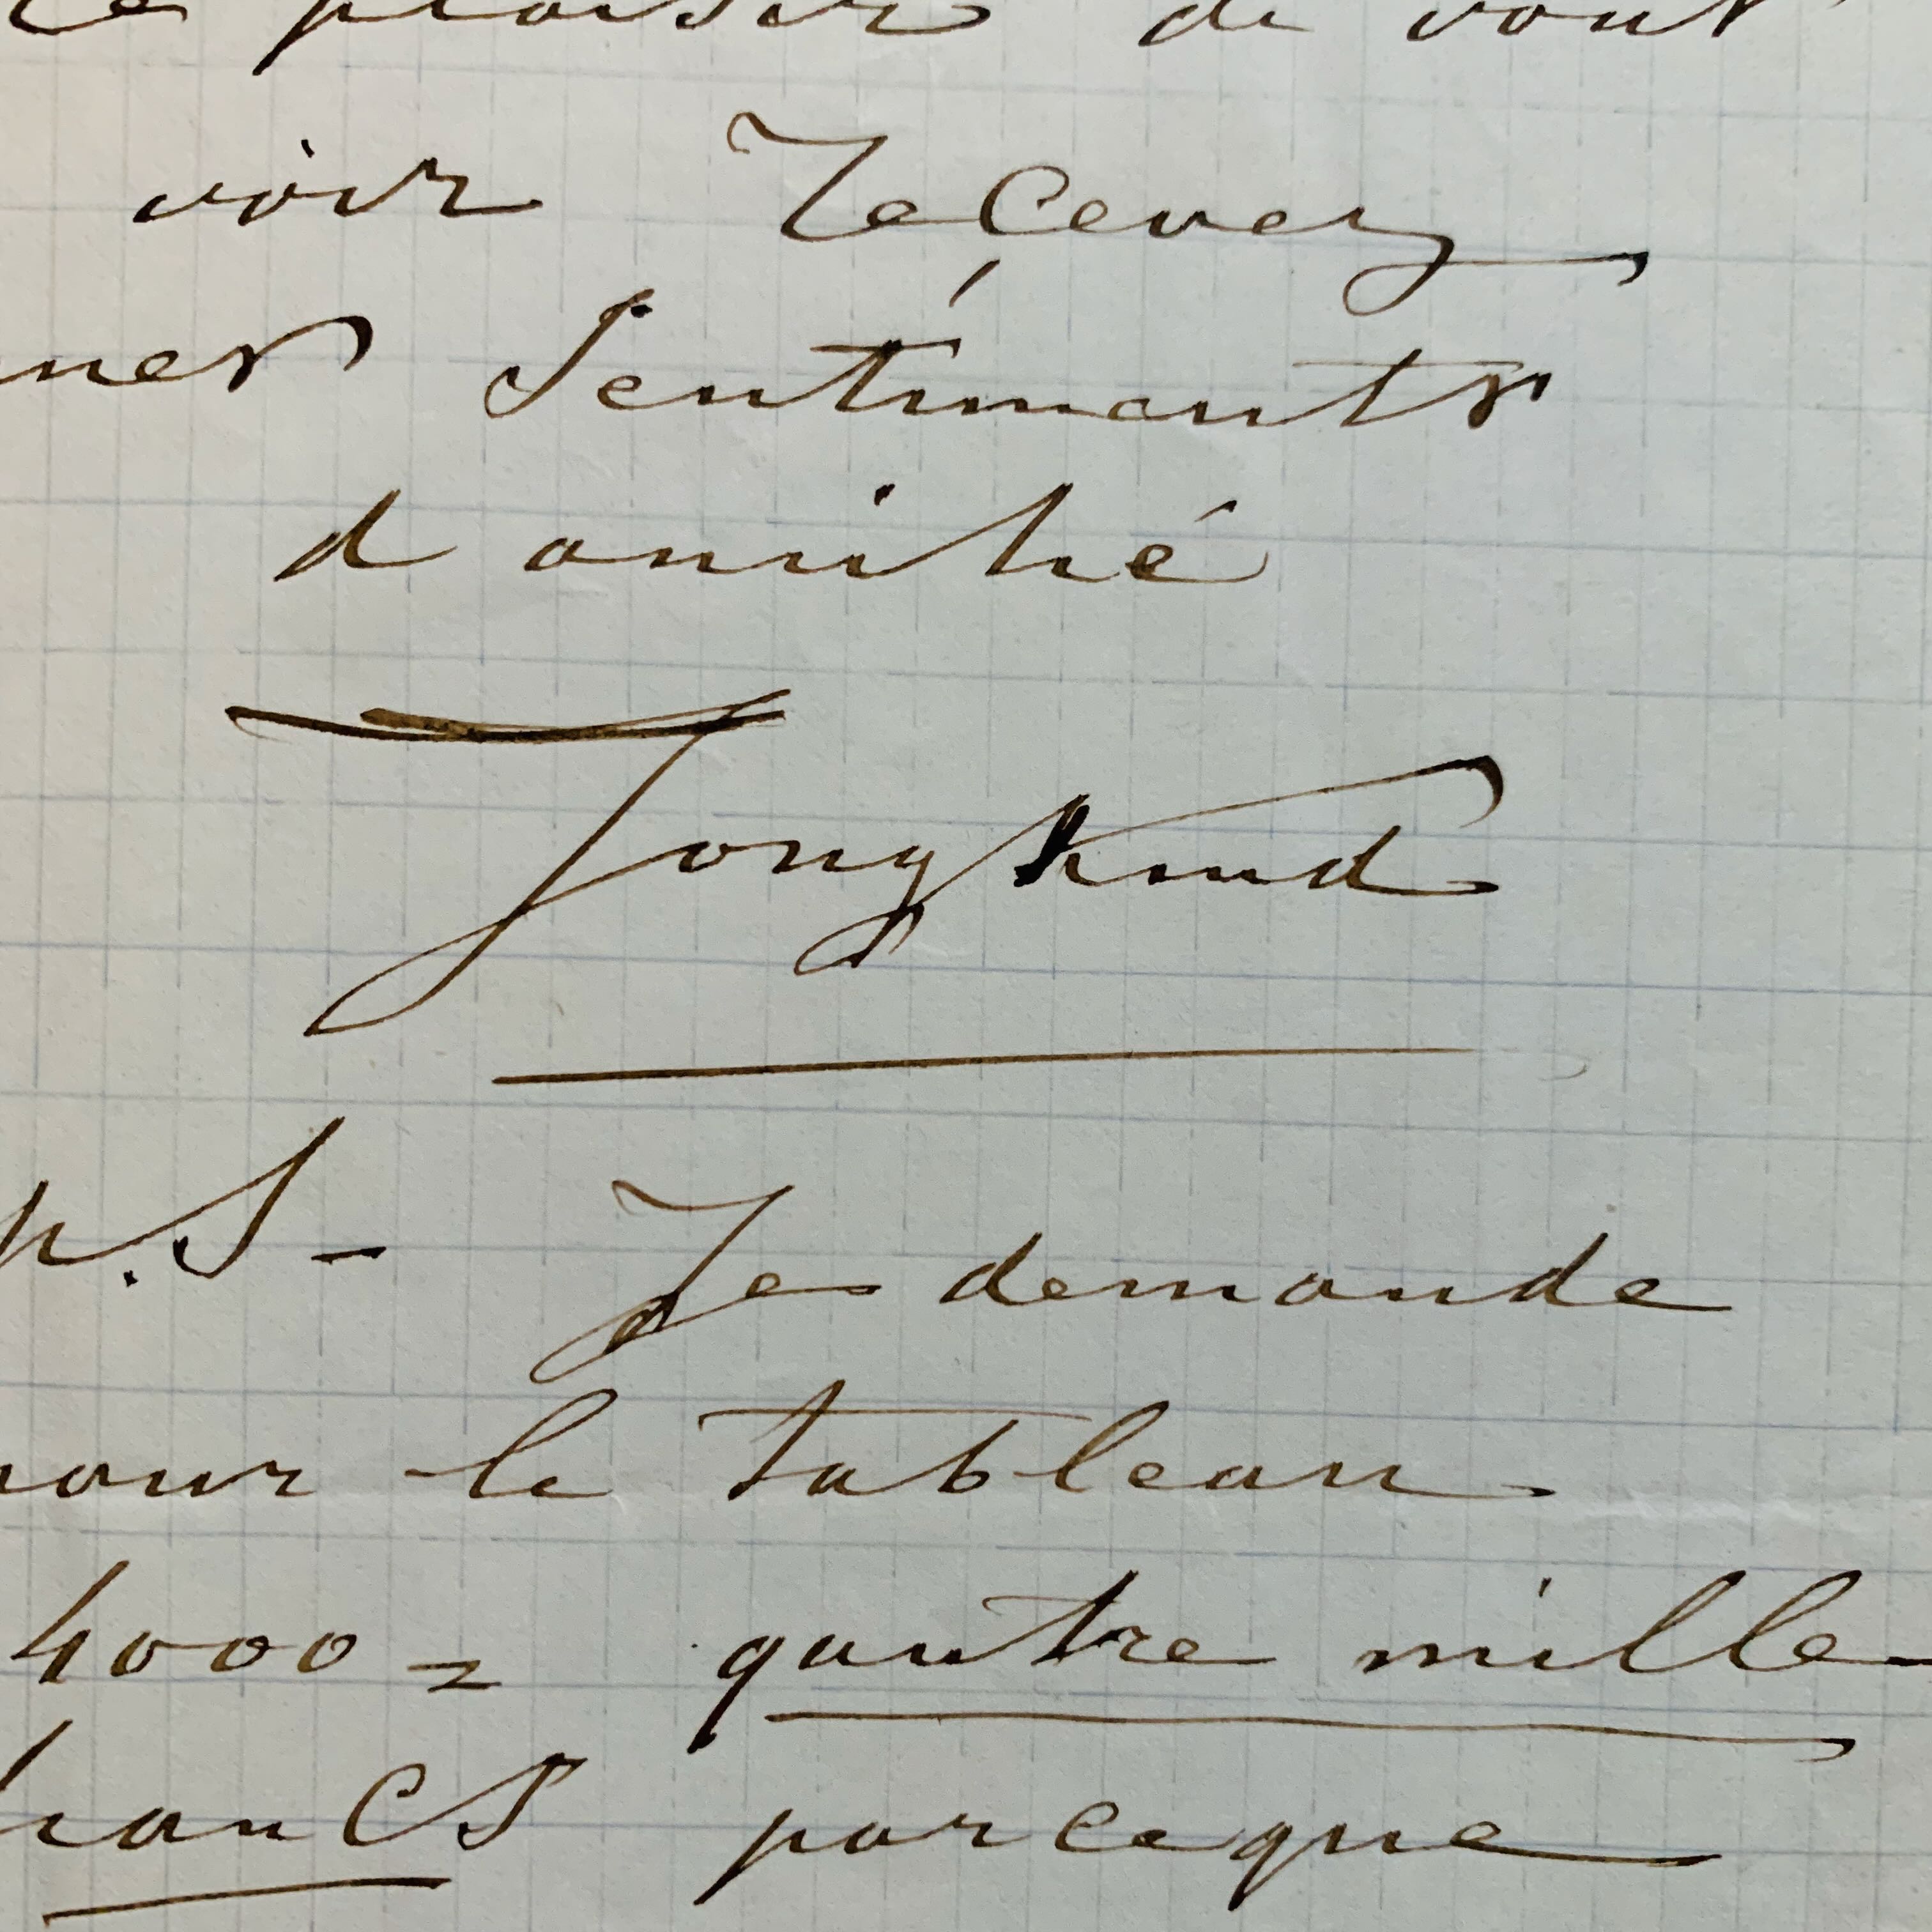 le plaisir de vous
voir Recevez
mes Sentiments
d amitié
Jongkind
p.S - Je demande
pour le tableau
4000 = quatre mille
francs parceque